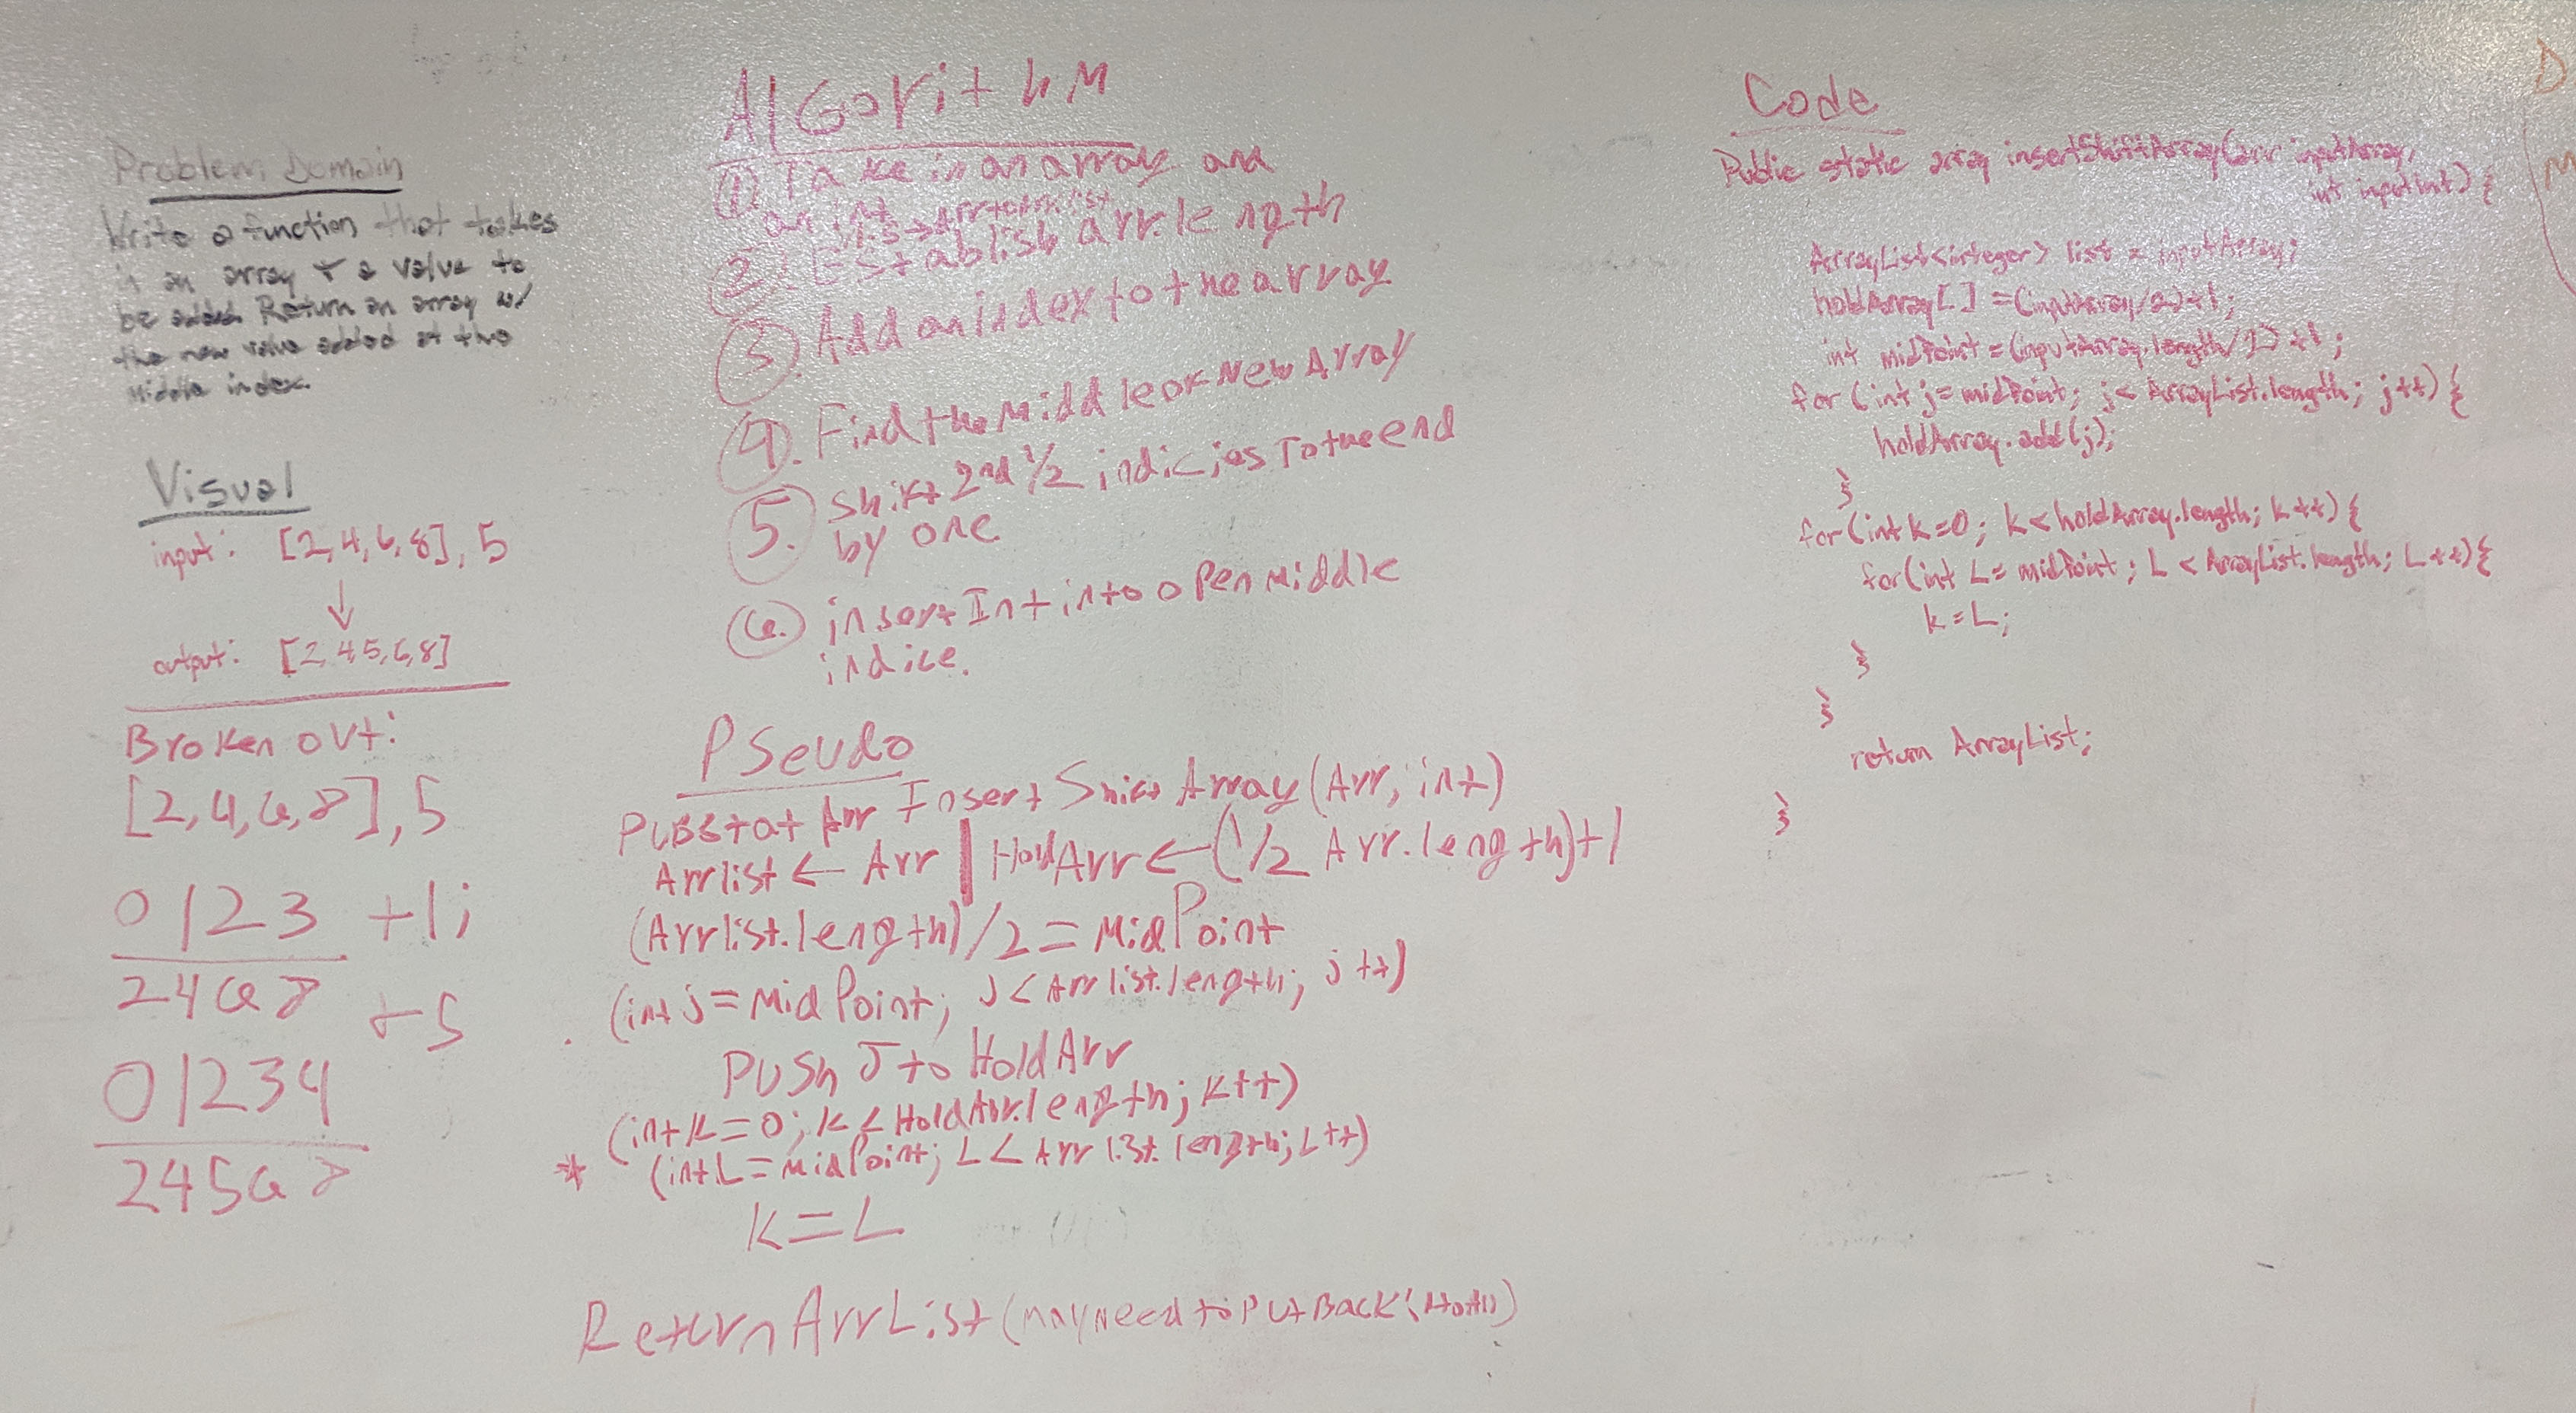 Problem Domain
Write a function that takes
in an array & a value to
be added. Return an array w/
the new value added at the
Middle index.
Visual
input: [2,4,6,8], 5
↓
output: [2,4,5,6,8]
Broken out:
[2,4,6,8], 5
0123 +1;
2468 +5
01234
24568
AlGorithM
1. Take in an array and
an int
2. Establish arr.length
3. Add an index to the array
4. Find the Middle of New Array
5. Shift 2nd 1/2 indicies To the end
by one
6. insert Int into open Middle
indice.
PSeudo
PUBStat Arr Insert Shift Array (Arr, int)
Arrlist ← Arr | HoldArr ← (1/2 Arr.length)+1
(Arrlist.length)/2 = MidPoint
(int j = MidPoint; J < Arrlist.length; j++)
PUSh J to HoldArr
(int K=0; K < HoldArr.length; K++)
* (int L = MidPoint; L < Arrlist.length; L++)
K = L
Return ArrList (may need to PutBack
Code
Public static array insertShiftArray(arr inputArray,
int inputInt) {
ArrayList<integer> list = inputArray;
holdArray[] = (inputArray/2)+1;
int midPoint = (inputArray.length/2)+1;
for (int j = midPoint; j < ArrayList.length; j++) {
holdArray.add(j);
}
for (int k=0; k < holdArray.length; k++) {
for (int L = midPoint; L < ArrayList.length; L++) {
k = L;
}
}
return ArrayList;
}
D
M